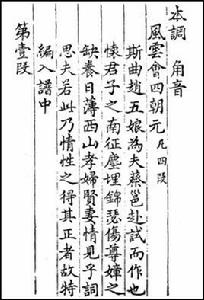 本調 角音
風雲會四朝元 凡四段
斯曲趙五娘為夫蔡邕赴試而作也
懷君子之南征塵埋錦瑟傷尊嫜之
缺養日薄西山孝婦賢妻情見乎詞
思夫若此乃情性之得其正者故特
編入譜中
第壹段